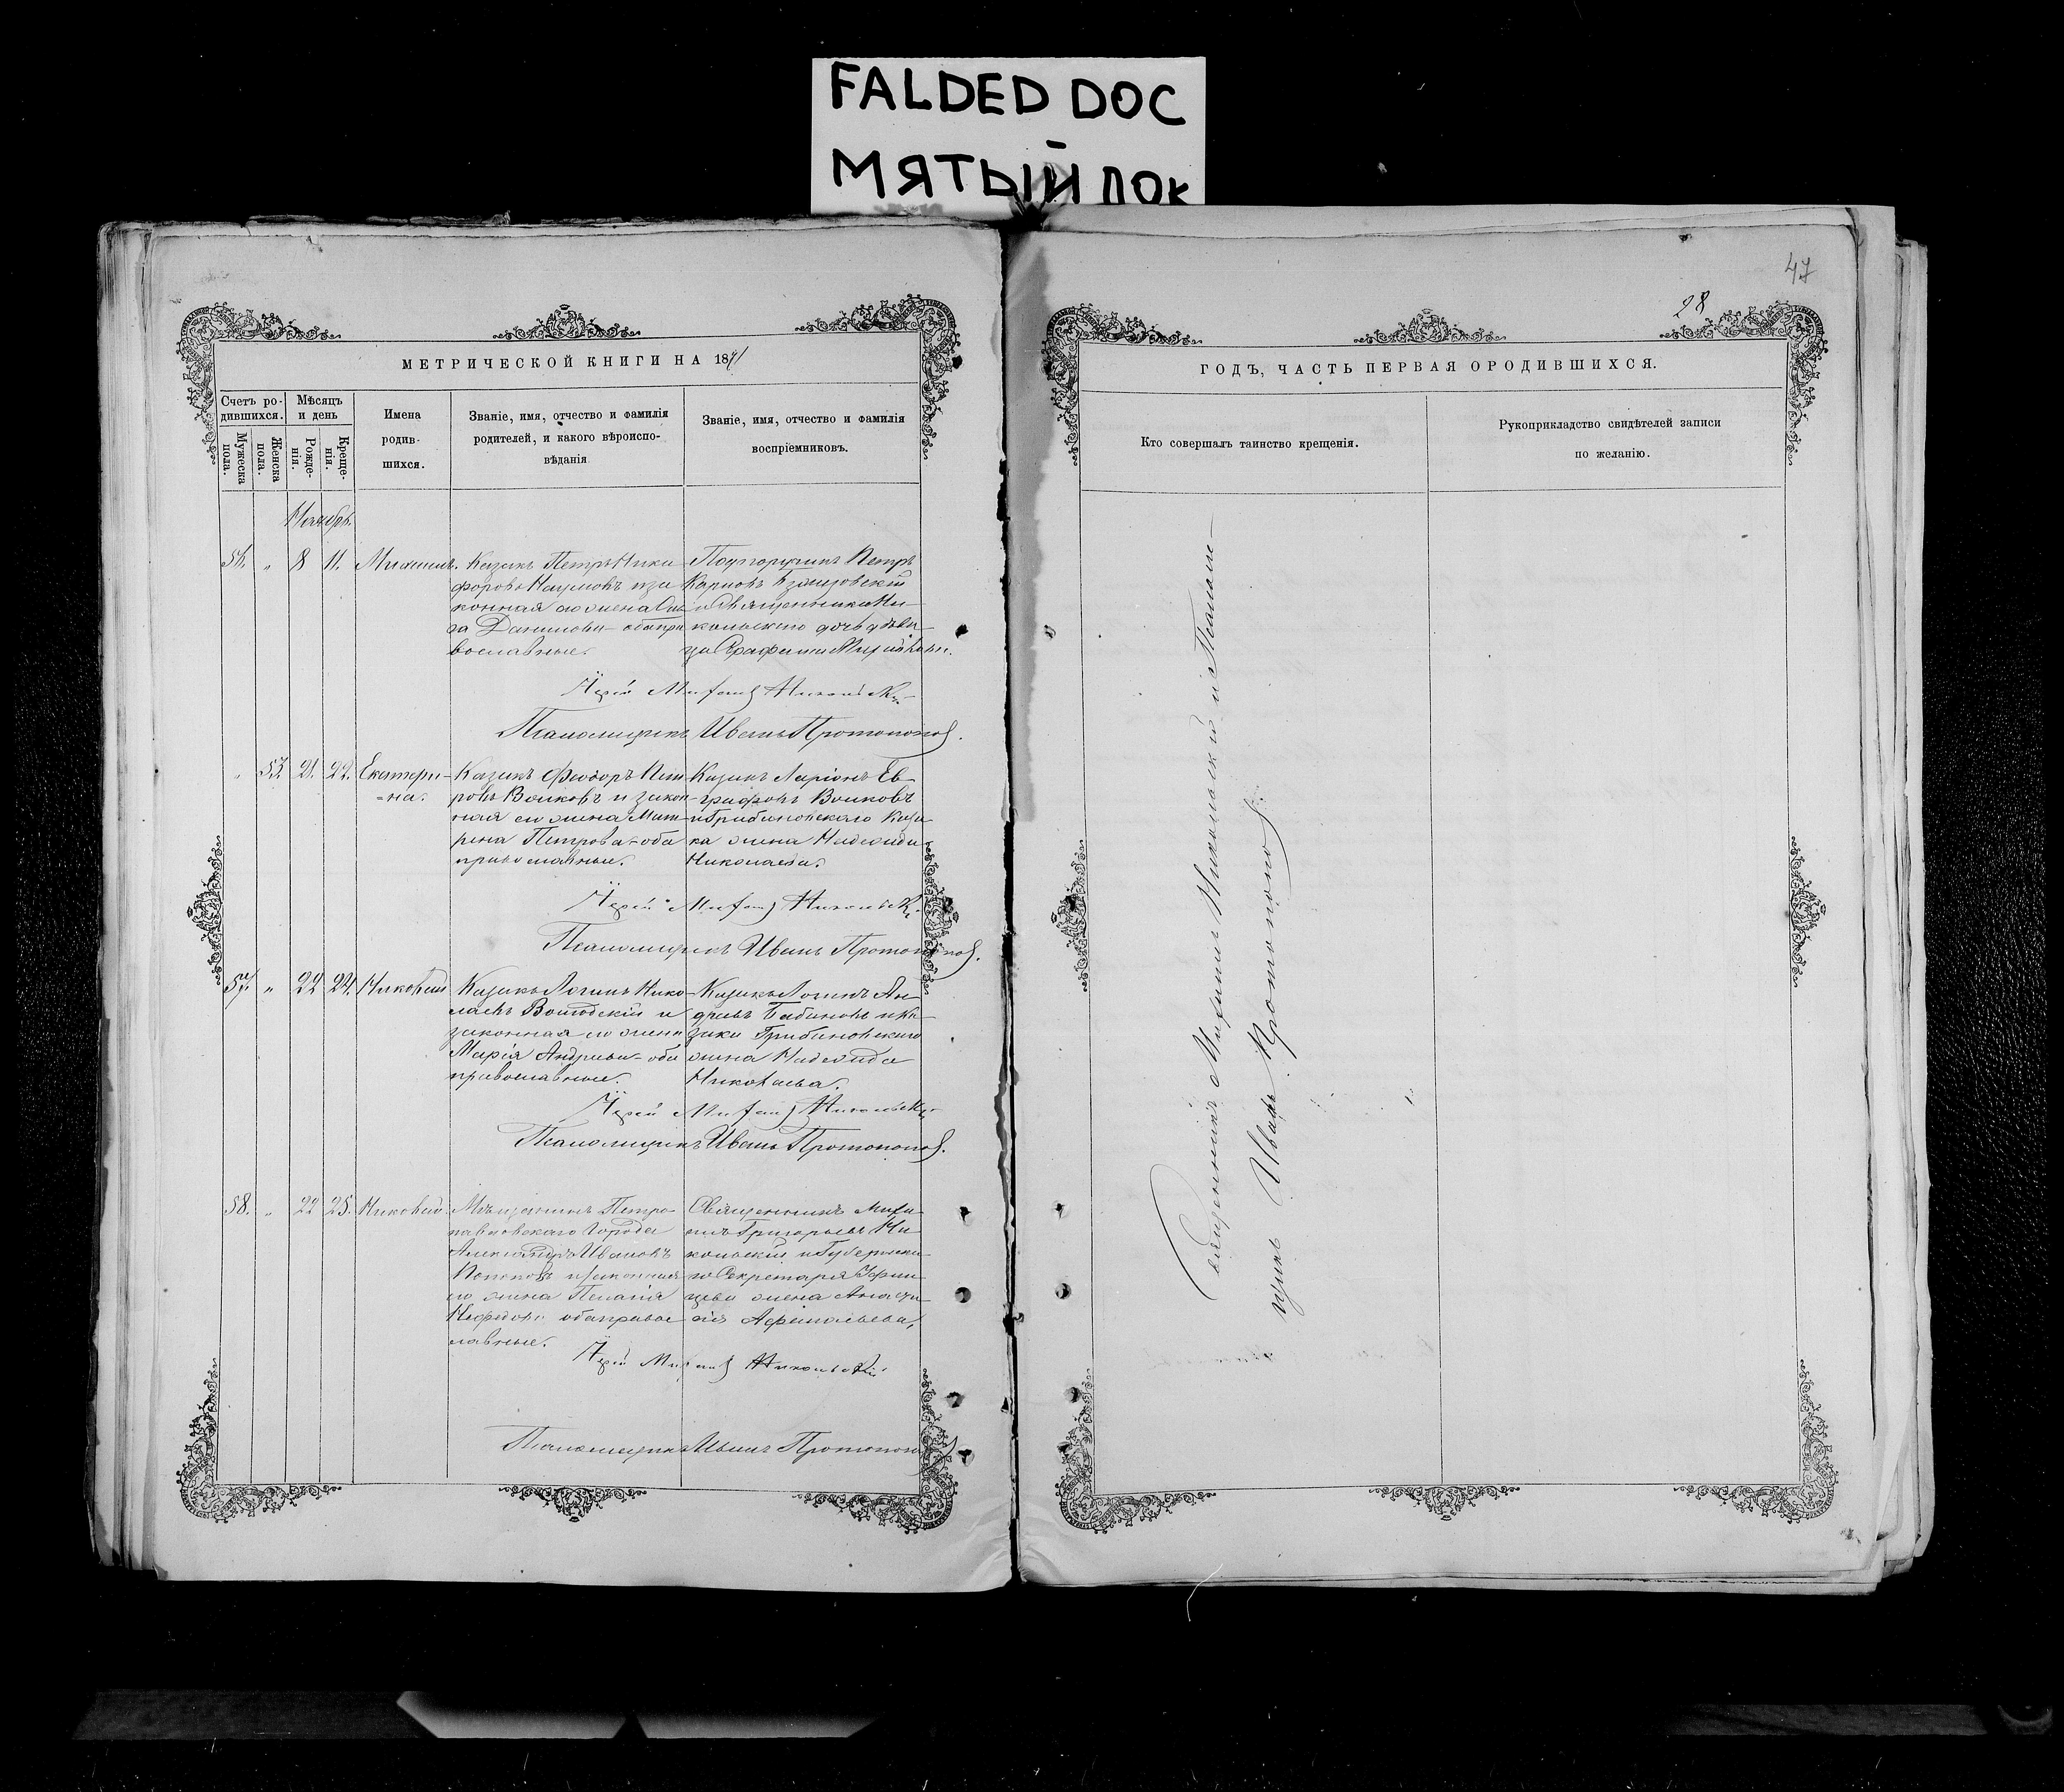 FALDED DOC
МЯТЫЙ ДОК
47
28
МЕТРИЧЕСКОЙ КНИГИ НА 1871
Счетъ ро-
дившихся.
Мѣсяцъ
и день
Мужеска
пола.
Женска
пола.
Рожде-
нія.
Креще-
нія.
Имена
родив-
шихся.
Званіе, имя, отчество и фамилія
родителей, и какого вѣроиспо-
вѣданія
Званіе, имя, отчество и фамилія
воспріемниковъ.
Ноябрь
56. „ 8 11. Михаилъ.
Казакъ Петръ Ники
форовъ Наумовъ и за
конная его жена
Данилова обапра
вославные.
Петръ
Карповъ
и Священника Ни-
кольскаго дочь дѣви-
ца Серафима
Іерей Никольскій
Псаломщикъ Иванъ Протопоповъ.
„ 53. 21. 22. Екатери-
=на.
Казакъ Феодоръ Пет
ровъ Волковъ и закон
ная его жена Мат
рена Петрова-оба
православные.
Казакъ Ларіонъ Ев-
графовъ Волковъ
и Грибановскаго каза
ка жена Надежда
Николаева.
Іерей Никольскій
Псаломщикъ Иванъ Протопоповъ.
57. „ 22 24. Николай
Казакъ Логинъ Нико-
лаевъ и
законная его жена
Марія Андреева-оба
православные.
Казакъ Логинъ Ан-
дреевъ Бабиновъ и Ка-
зака Грибановскаго
жена Надежда
Николаева.
Іерей Никольскій
Псаломщикъ Иванъ Протопоповъ.
58. „ 22 25. Николай.
Мѣщанинъ Петро-
павловскаго Города
Александръ Ивановъ
и законная
его жена Пелагія
обаправос
лавные.
Священникъ
Григорьевъ Ни-
кольскій и Губернска
го Секретаря
жена Анаста
сія
Іерей Никольскій
Псаломщикъ Иванъ Протопоповъ
ГОДЪ, ЧАСТЬ ПЕРВАЯ ОРОДИВШИХСЯ.
Кто совершалъ таинство крещенія.
Рукоприкладство свидѣтелей записи
по желанію.
Священникъ Никольскій и Псалом-
щикъ Иванъ Протопоповъ.